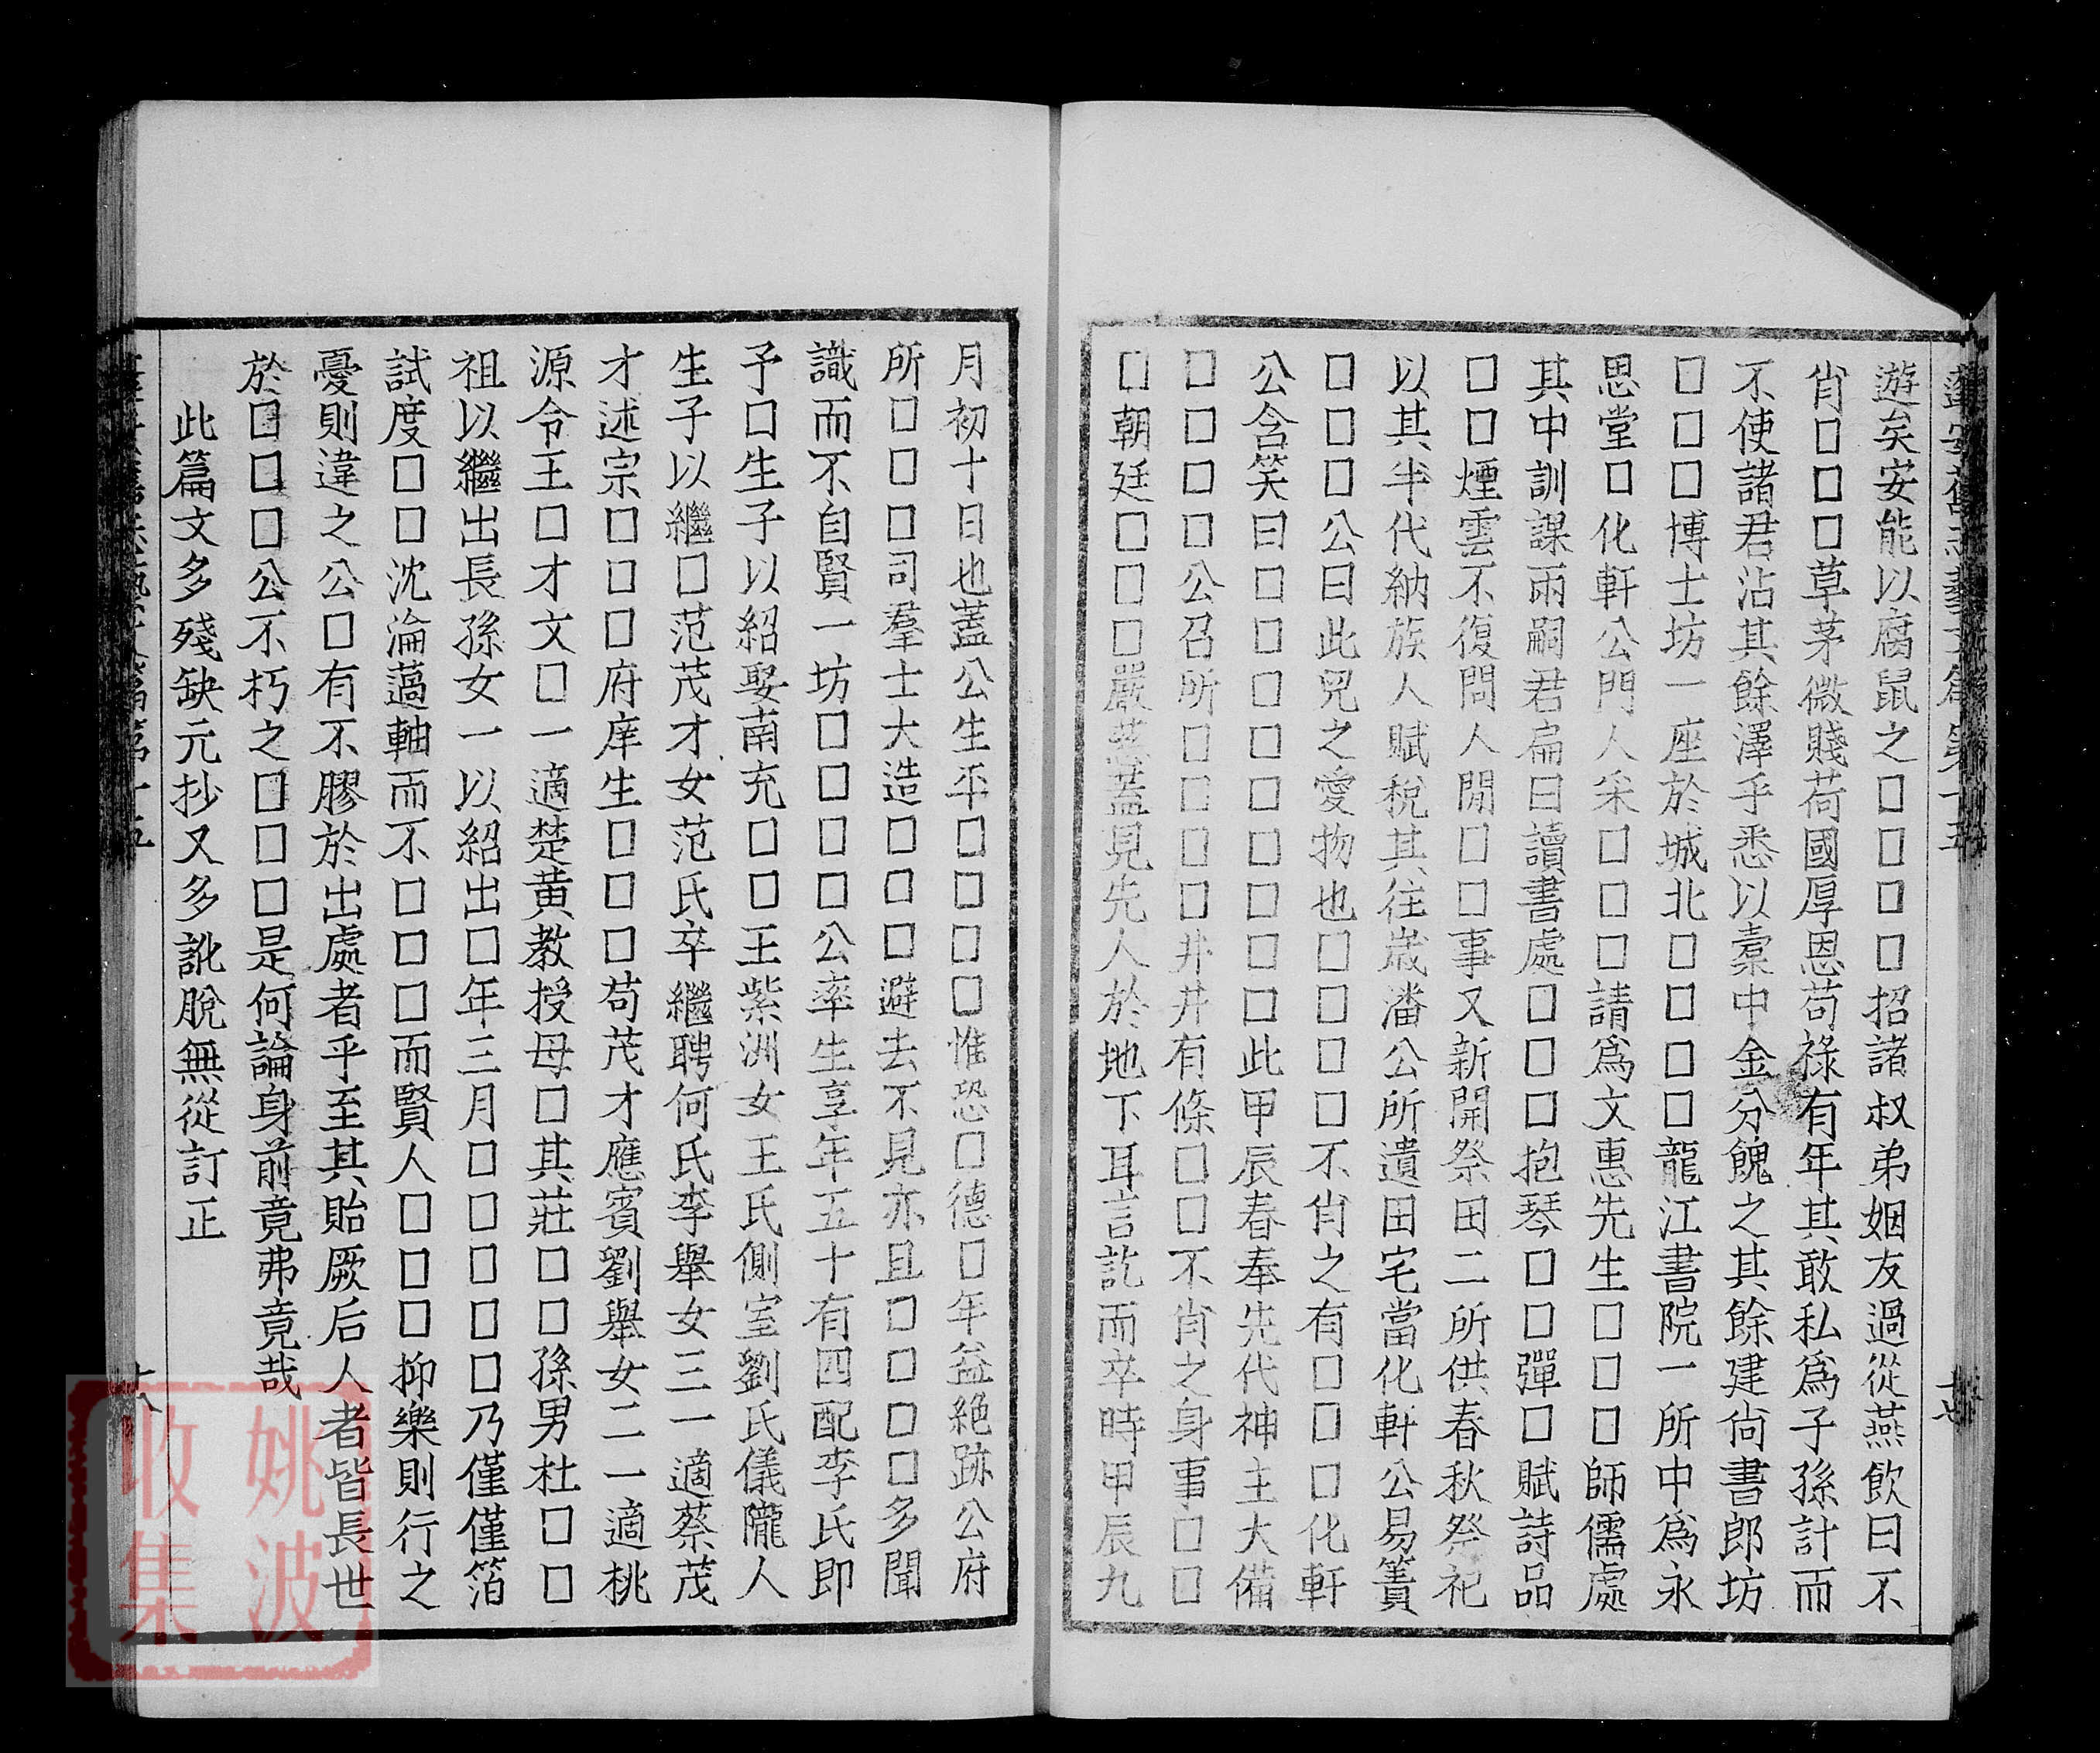 遊矣安能以腐鼠之□□□□招諸叔弟姻友過從燕飲曰不
肖□□□草茅微賤荷國厚恩苟祿有年其敢私爲子孫計而
不使諸君沾其餘澤乎悉以橐中金分餽之其餘建尙書郎坊
□□□博士坊一座於城北□□□□龍江書院一所中爲永
思堂□化軒公門人采□□□請爲文惠先生□□□師儒處
其中訓課兩嗣君扁曰讀書處□□□抱琴□□彈□賦詩品
□□煙雲不復問人閒□□事又新開祭田二所供春秋祭祀
以其半代納族人賦稅其往歲潘公所遺田宅當化軒公易簀
□□□公曰此兒之愛物也□□□□不肖之有□□□化軒
公含笑曰□□□□□□□□□此甲辰春奉先代神主大備
□□□□公召所□□□□井井有條□□不肖之身事□□
□朝廷□□□嚴慈蓋見先人於地下耳言訖而卒時甲辰九
月初十日也蓋公生平□□□□惟恐□德□年益絕跡公府
所□□□司羣士大造□□□避去不見亦且□□□□多聞
識而不自賢一坊□□□□公率生享年五十有四配李氏即
予□生子以紹娶南充□□王紫洲女王氏側室劉氏儀隴人
生子以繼□范茂才女范氏卒繼聘何氏李舉女三一適蔡茂
才述宗□□□府庠生□□□苟茂才應賓劉舉女二一適桃
源令王□才文□一適楚黄教授母□其莊□□孫男杜□□
祖以繼出長孫女一以紹出□年三月□□□□□乃僅僅箔
試度□□沈淪薖軸而不□□□而賢人□□□抑樂則行之
憂則違之公□有不膠於出處者乎至其貽厥后人者皆長世
於□□□公不朽之□□□是何論身前竟弗竟哉
此篇文多殘缺元抄又多訛脫無從訂正
十八
姚波
收集